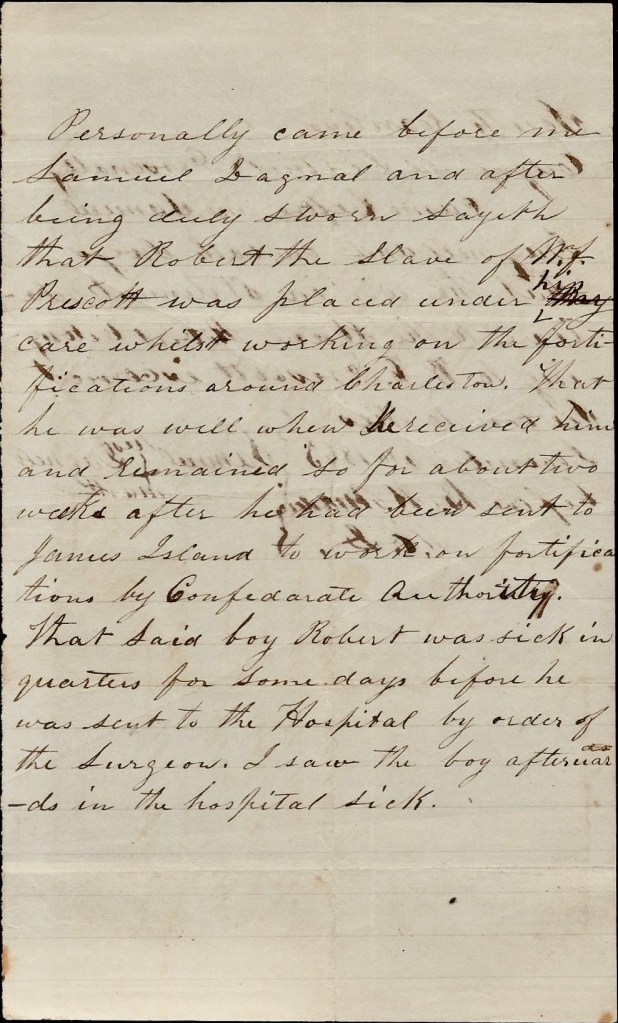 Personally came before me
Samuel Dagnal and after
being duly sworn sayeth
that Robert the slave of W. J.
Prescott was placed under his my
care whilst working on the forti-
fications around Charleston. That
he was well when he received him
and remained so for about two
weeks after he had been sent to
James Island to work on fortifica
tions by Confedarate Authority.
That said boy Robert was sick in
quarters for some days before he
was sent to the Hospital by order of
the Surgeon. I saw the boy afterwar
-ds in the hospital sick.